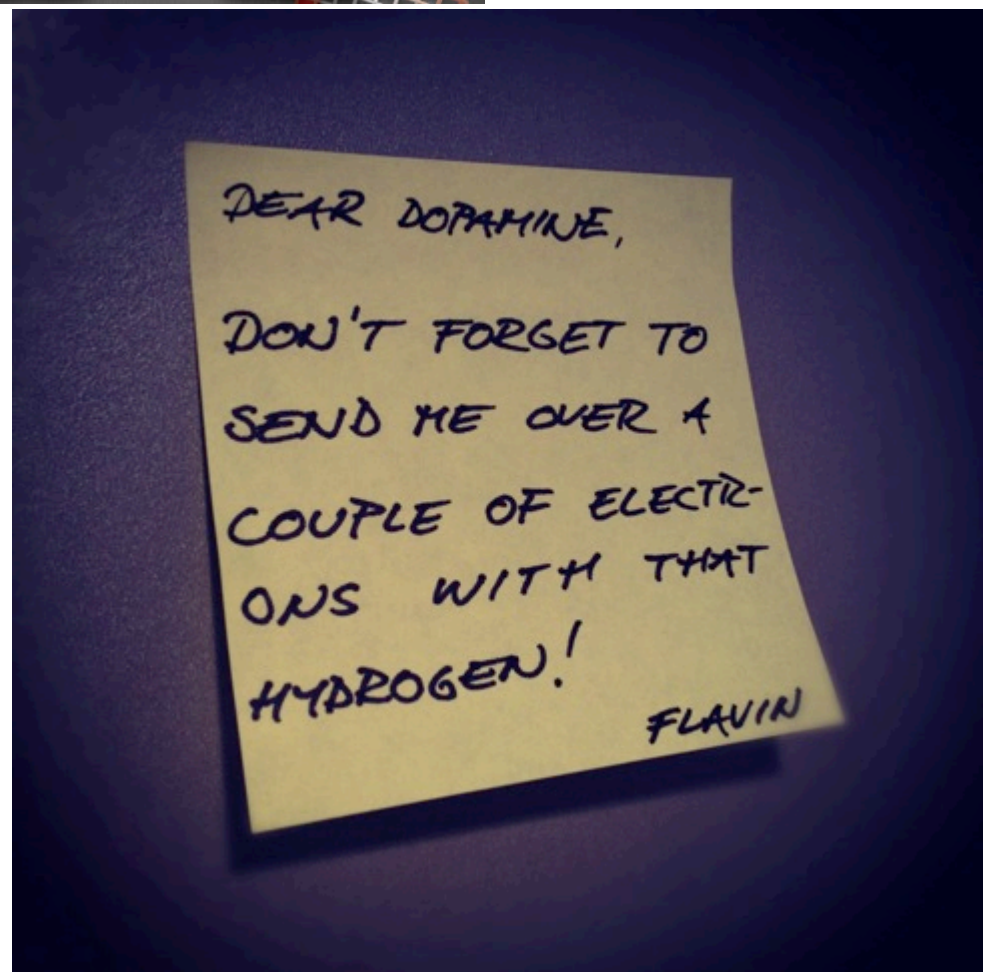 DEAR DOPAMINE,
DON'T FORGET TO
SEND ME OVER A
COUPLE OF ELECTR-
ONS WITH THAT
HYDROGEN!
FLAVIN